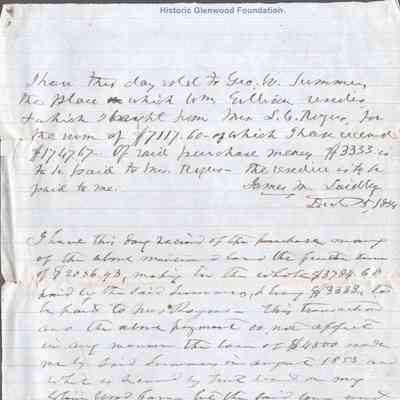 Historic Glenwood Foundation.
I have this day sold to Geo. W. Summers
the place on which Wm Gillison resides
& which I bought from Mrs S. C. Rogers, for
the sum of $7117.60 of which I have received
$1747.67. Of said purchase money $3333 is
to be paid to Mrs. Rogers the residue is to be
paid to me. James M. Laidley
I have this day received of the purchase money
of the above mentioned land the further sum
of $2036.93, making in the whole $3784.60
paid by the said Summers, & leaving $3333, to
be paid to Mrs Rogers. This transaction
and the above payment do not affect
in any manner the loan of $4800 made
me by said Summers in august 1853 and
which is secured by Trust Deed on my